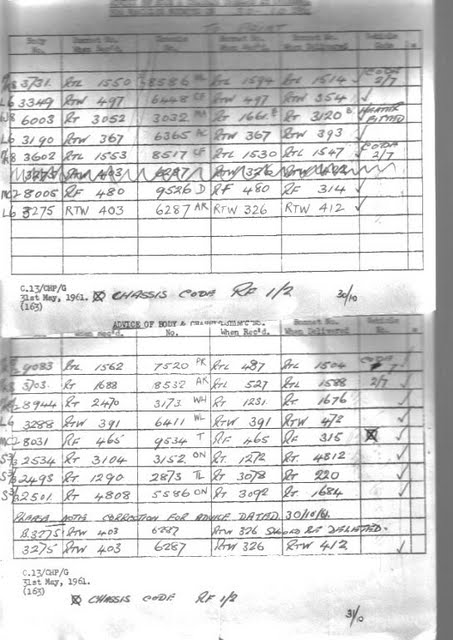 TO PRINT
Body No. Bonnet No. When Rec'd. No. Bonnet No. When Rec'd. Bonnet No. When Delivered Vehicle Code
3731 RTL 1550 8586 RTL 1594 RTL 1514 ✓ CODA 2/7
L6 3349 RTW 497 6448 RTW 497 RTW 354 ✓
6003 RT 3052 3032 RT 1661 RT 3120 HEATER FITTED
L6 3190 RTW 367 6365 RTW 367 RTW 393 ✓
3602 RTL 1553 8517 RTL 1530 RTL 1547 ✓ CODA 2/7
3275 RTW 403 6287 RTW 326
8005 RF 480 9526 D RF 480 RF 314 ✓
L6 3275 RTW 403 6287 AR RTW 326 RTW 412 ✓
C.13/CHP/G
31st May, 1961. ☒ CHASSIS CODA RF 1/2 30/10
(163)
ADVICE OF BODY &
When Rec'd. No. When Rec'd. Bonnet No. When Delivered Vehicle No.
9083 RTL 1562 7520 PK RTL 487 RTL 1504 CODA
3703 RT 1688 8532 AK RTL 527 RTL 1588 2/7 ✓
8944 RT 2470 3173 WH RT 1231 RT 1676 ✓
L6 3288 RTW 391 6411 WL RTW 391 RTW 472 ✓
8031 RF 465 9534 T RF 465 RF 315 ☒
2534 RT 3104 3152 ON RT 1272 RT 4812 ✓
2495 RT 1290 2873 TL RT 3078 RT 220 ✓
2501 RT 4808 5586 ON RT 3092 RT 1684 ✓
PLEASE NOTE CORRECTION FOR ADVICE DATED 30/10/61.
B.3275 RTW 403 6287 RTW 326 SHOULD BE DELETED.
3275 RTW 403 6287 RTW 326 RTW 412 ✓
C.13/CHP/G
31st May, 1961.
(163) ☒ CHASSIS CODE RF 1/2 31/10